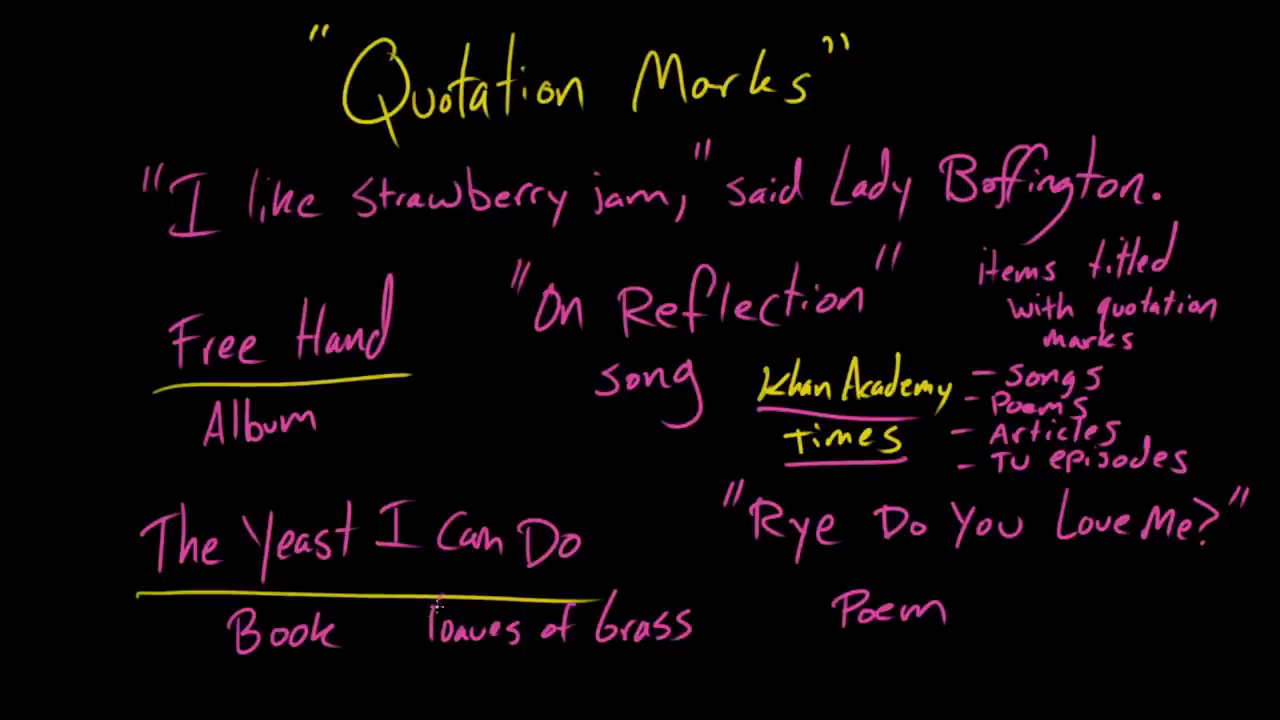 "Quotation Marks"
"I like strawberry jam," said Lady Boffington.
Free Hand
Album
"On Reflection"
song
items titled
with quotation
marks
- Songs
- Poems
- Articles
- TV episodes
Khan Academy
Times
The Yeast I Can Do
Book
Loaves of Grass
"Rye Do You Love Me?"
Poem